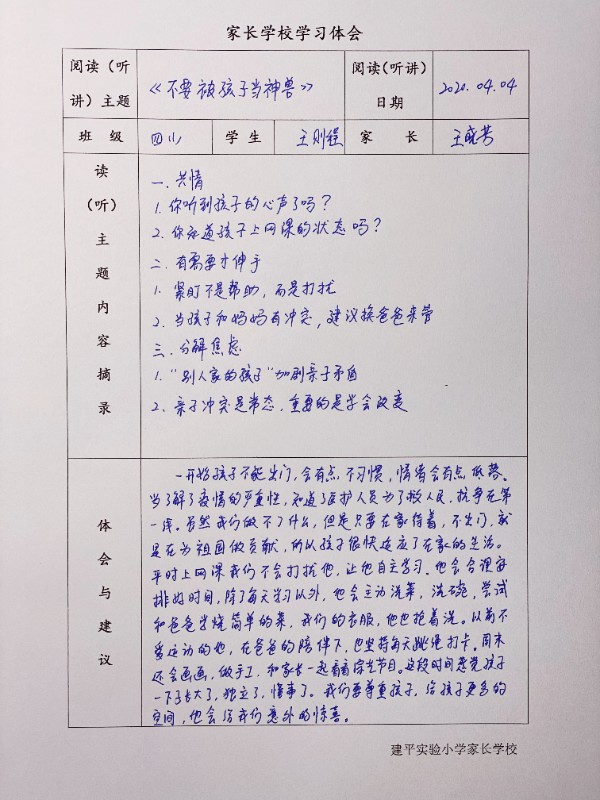 家长学校学习体会
阅读（听讲）主题 《不要被孩子当神兽》 阅读（听讲）日期 2020.04.04
班 级 四(1) 学 生 王则程 家 长 王晓芳
读（听）主题内容摘录
一.共情
1.你听到孩子的心声了吗？
2.你知道孩子上网课的状态吗？
二.有需要才伸手
1.紧盯不是帮助，而是打扰
2.当孩子和妈妈有冲突，建议换爸爸来管
三.分解焦虑
1."别人家的孩子"加剧亲子矛盾
2.亲子冲突是常态，重要的是学会改变
体会与建议
一开始孩子不能出门，会有点不习惯，情绪会有点低落。
当了解了疫情的严重性，知道了医护人员为了救人民，抗争在第
一线。虽然我们做不了什么，但是只要在家待着，不出门，就
是在为祖国做贡献，所以孩子很快适应了在家的生活。
平时上网课我们不会打扰他，让他自主学习。他会合理安
排好时间，除了每天学习以外，他会主动洗菜，洗碗，尝试
和爸爸学烧简单的菜，我们的衣服，他也抢着洗。以前不
爱运动的他，在爸爸的陪伴下，也坚持每天跳绳打卡。周末
还会画画，做手工，和家长一起看看综艺节目。这段时间感觉孩子
一下子长大了，独立了，懂事了。我们要尊重孩子，给孩子更多的
空间，他会给我们意外的惊喜。
建平实验小学家长学校